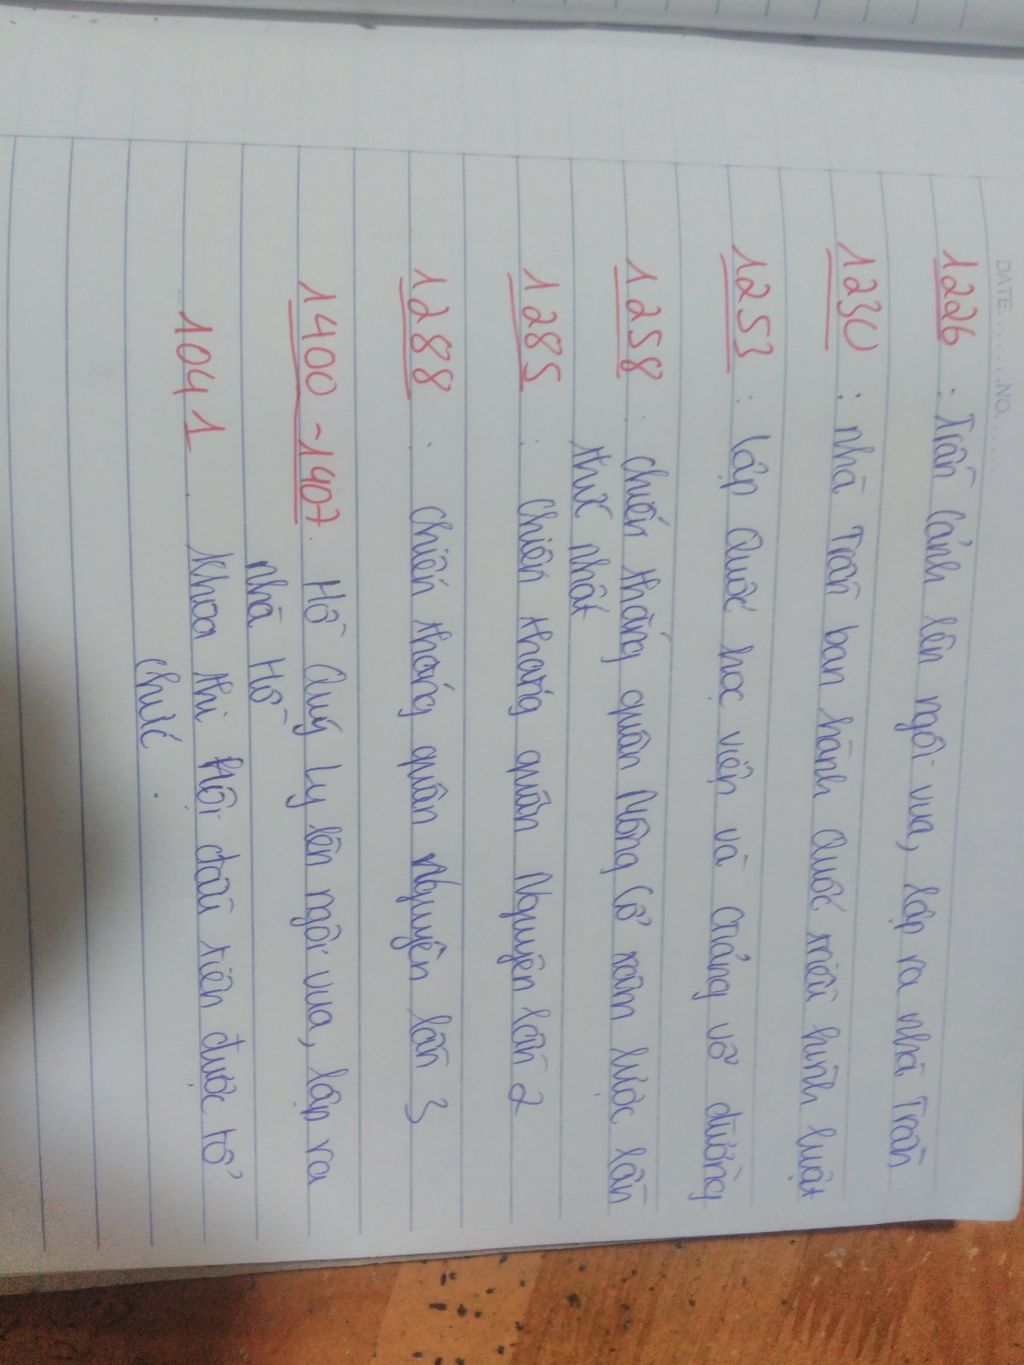 DATE.......NO.......
1226 : Trần Cảnh lên ngôi vua, lập ra nhà Trần
1230 : nhà Trần ban hành Quốc triều hình luật
1253 : lập Quốc học viện và Giảng võ đường
1258 : chiến thắng quân Mông Cổ xâm lược lần
thứ nhất
1285 : Chiến thắng quân Nguyên lần 2
1288 : chiến thắng quân Nguyên lần 3
1400 - 1407 : Hồ Quý Ly lên ngôi vua, lập ra
nhà Hồ
1041 : Khoa thi Hội đầu tiên được tổ
chức.